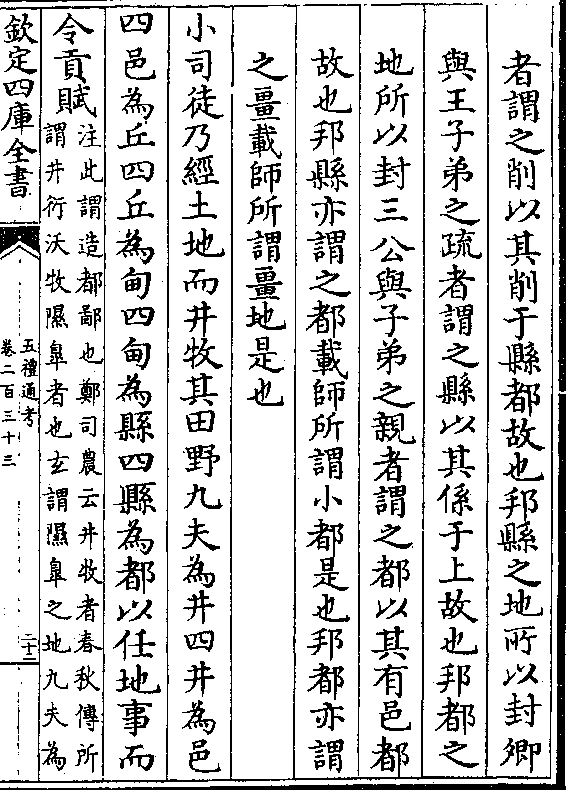 者謂之削以其削于縣都故也邦縣之地所以封卿
與王子弟之疏者謂之縣以其係于上故也邦都之
地所以封三公與子弟之親者謂之都以其有邑都
故也邦縣亦謂之都載師所謂小都是也邦都亦謂
之畺載師所謂畺地是也
小司徒乃經土地而井牧其田野九夫為井四井為邑
四邑為丘四丘為甸四甸為縣四縣為都以任地事而
令貢賦
注此謂造都鄙也鄭司農云井牧者春秋傳所
謂井衍沃牧隰臯者也玄謂隰臯之地九夫為
欽定四庫全書
五禮通考
卷二百三十三
二十二